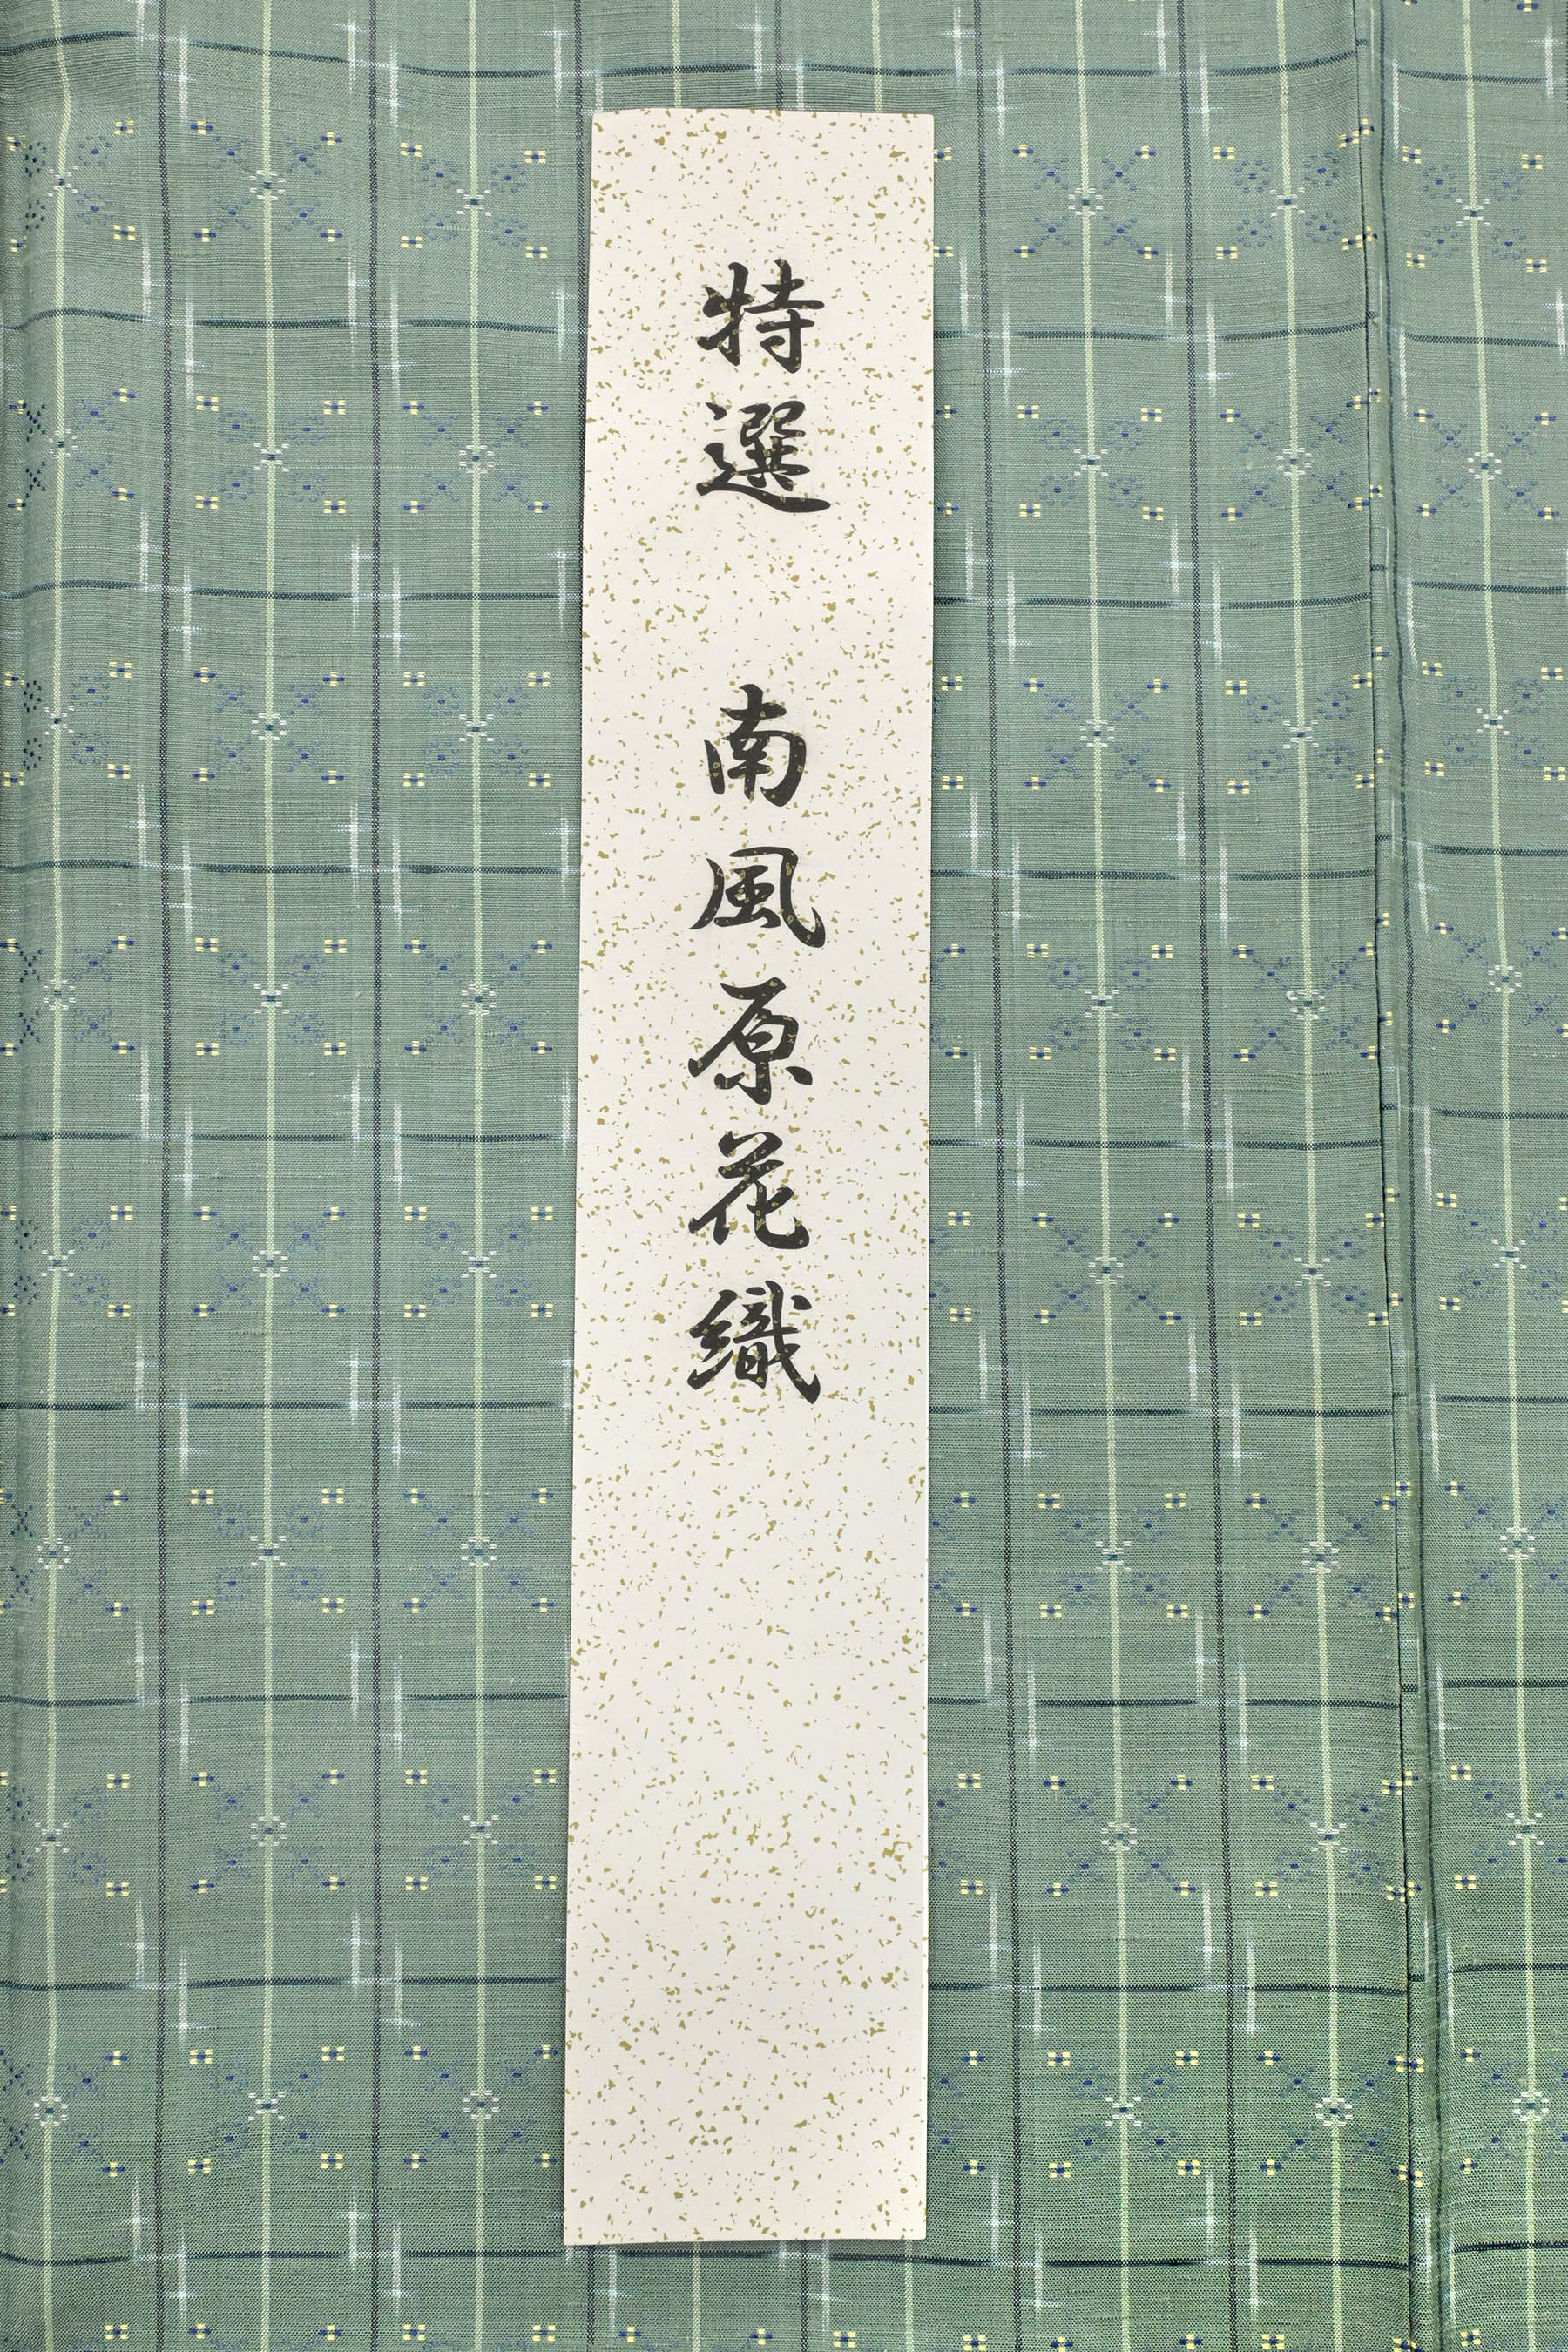 特選　南風原花織